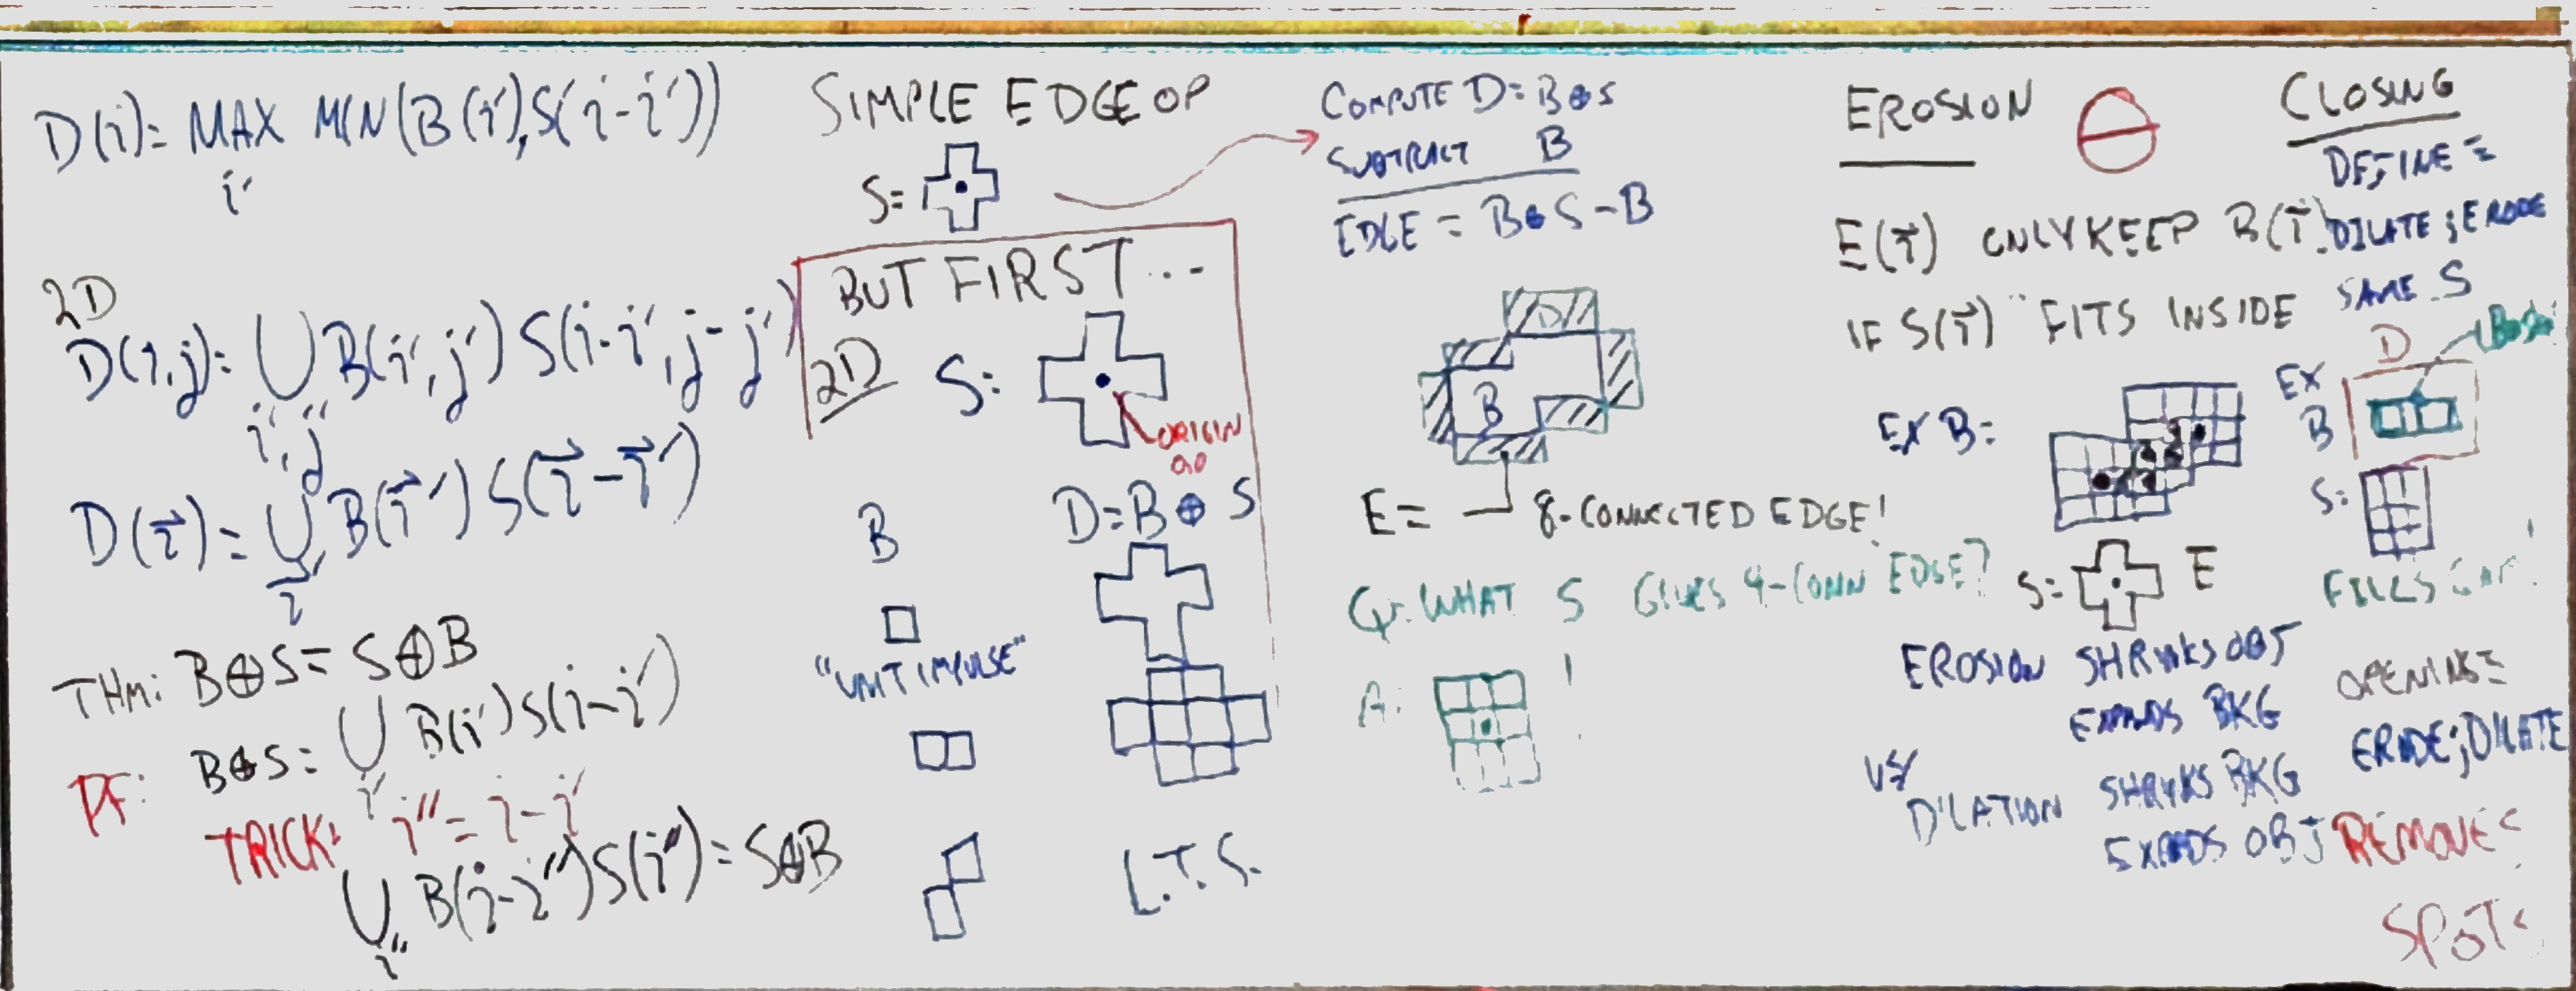 D(i)= MAX MIN(B(i'),S(i-i'))
i'
2D
D(i,j)= ⋃ B(i',j') S(i-i',j-j')
i',j'
D(i⃗)= ⋃ B(i⃗') S(i⃗-i⃗')
i⃗'
THM: B⊕S= S⊕B
PF: B⊕S= ⋃ B(i')S(i-i')
i'
TRICK: i''= i-i'
⋃ B(i-i'')S(i'')= S⊕B
i''
SIMPLE EDGE OP
S=
BUT FIRST...
2D S=
ORIGIN
0,0
B D=B⊕S
"UNIT IMPULSE"
L.T.S.
COMPUTE D=B⊕S
SUBTRACT B
EDGE = B⊕S-B
D
B
E= 8-CONNECTED EDGE!
Q: WHAT S GIVES 4-CONN EDGE?
A: !
EROSION ⊖
E(i⃗) ONLY KEEP B(i⃗)
IF S(i⃗) "FITS INSIDE
EX B=
S= E
EROSION SHRINKS OBJ
EXPANDS BKG
VS/
DILATION SHRINKS BKG
EXPANDS OBJ
CLOSING
DEFINE =
DILATE; ERODE
SAME S
D B⊕S
EX
B
S=
FILLS GAP!
OPENING=
ERODE; DILATE
REMOVES
SPOTS